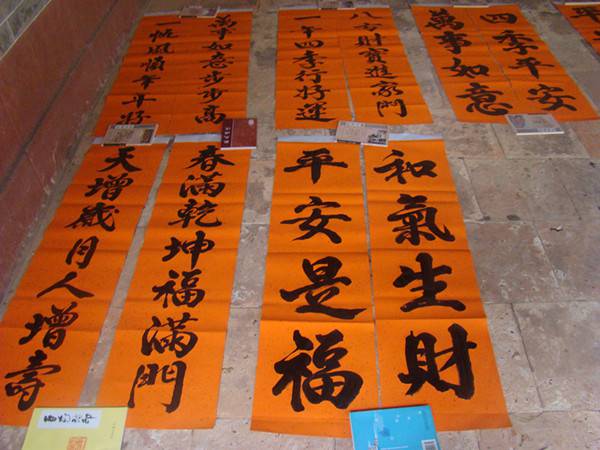 萬事如意步步高
一帆風順年年好
八方財寶進家門
一年四季行好運
四季平安
萬事如意
平
春滿乾坤福滿門
天增歲月人增壽
和氣生財
平安是福